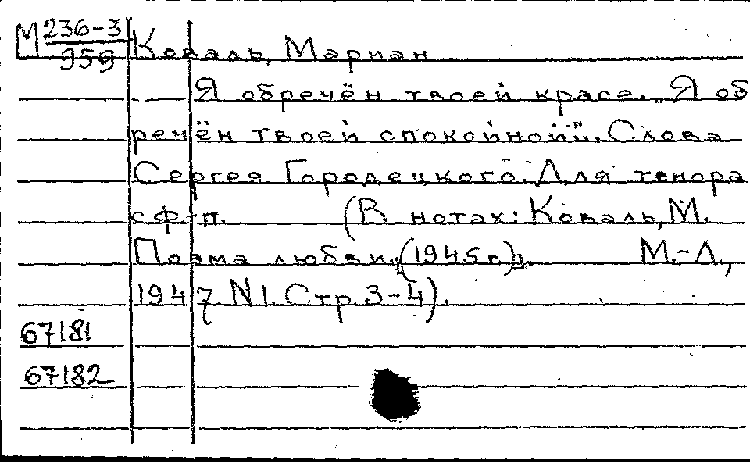 М 236-3 Коваль, Мариан
959
Я обречён твоей красе. „Я об
речён твоей спокойной". Слова
Сергея Городецкого. Для тенора
с ф-п. (В нотах: Коваль, М.
Поэма любви. (1945 г.). М.-Л.,
1947. N1. Стр. 3-4).
67181
67182